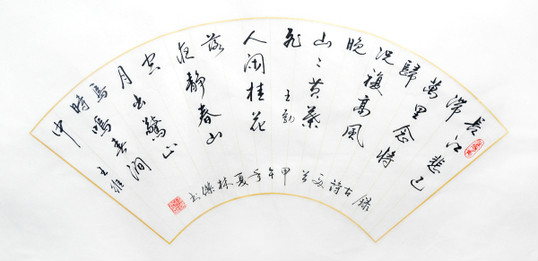 長江悲已
滞
萬里念將
歸
況複高風
晚
山〻黄葉
飛 王勃
人闲桂花
落
夜靜春山
空
月出驚山
鳥
時鳴春澗
中 王維
錄古詩首甲午年夏林傑书